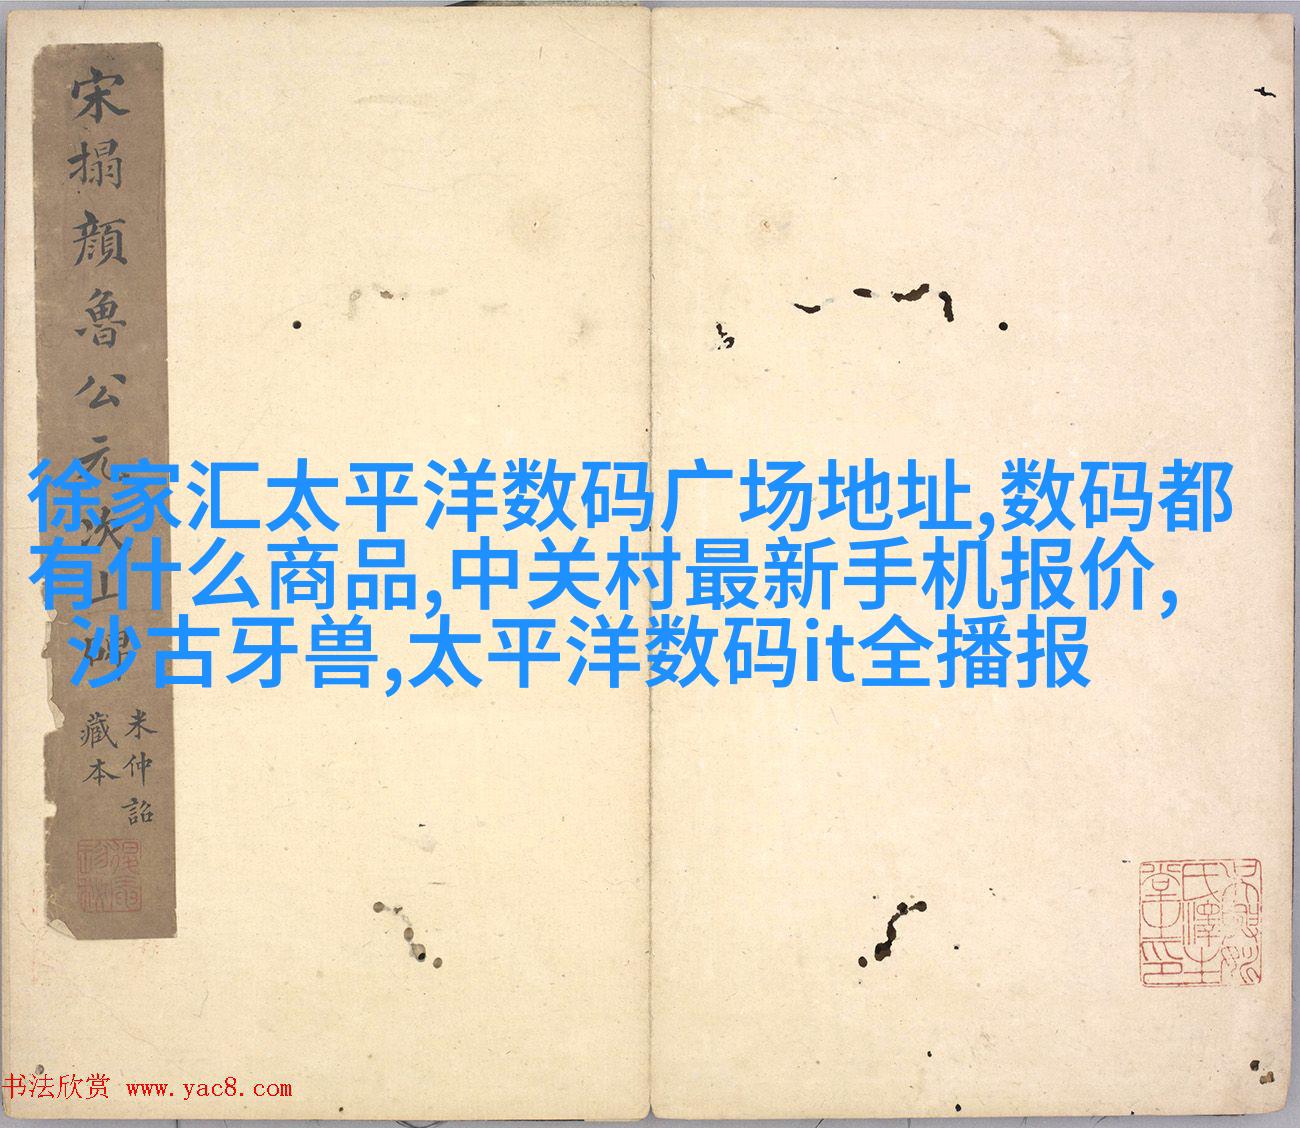 宋搨顔魯公元次山碑
米仲詔
藏本
徐家汇太平洋数码广场地址,数码都
有什么商品,中关村最新手机报价,
沙古牙兽,太平洋数码it全播报
书法欣赏 www.yac8.com